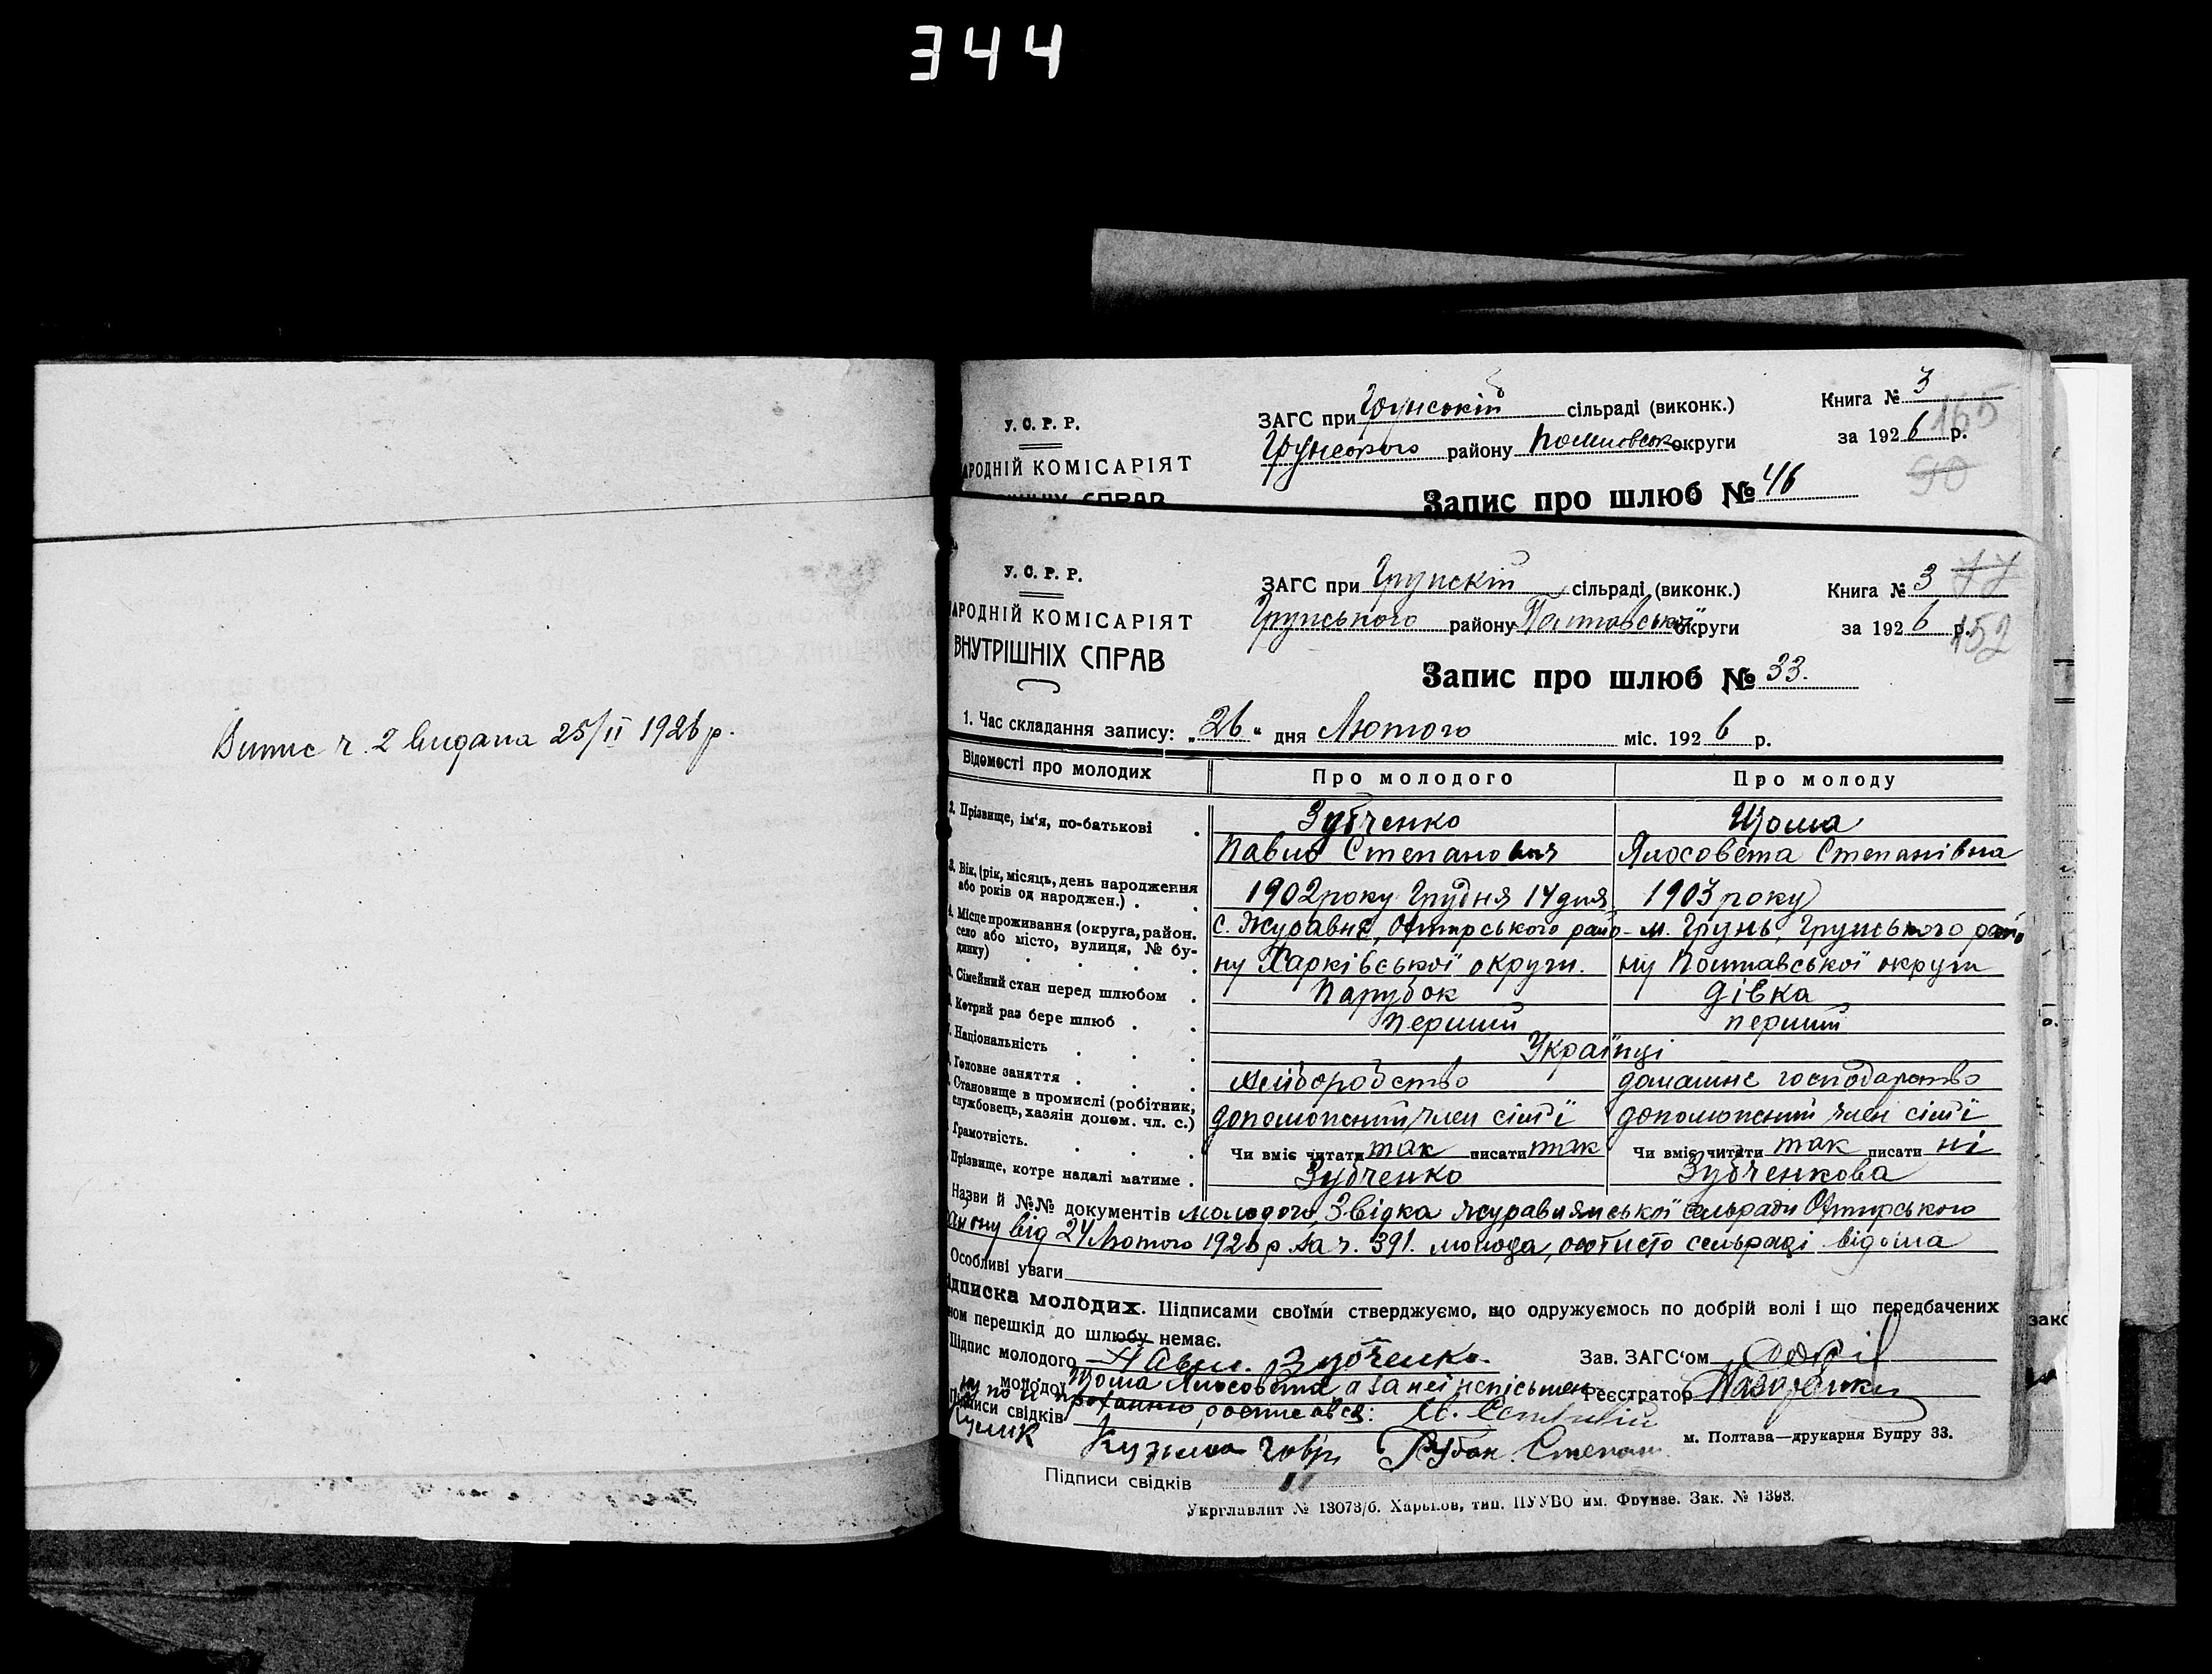 344
У. С. Р. Р.
ЗАГС при Грунській сільраді (виконк.)
Книга № 3
165
Грунського району Полтавськ округи
за 1926 р.
АРОДНІЙ КОМІСАРІЯТ
90
Запис про шлюб № 46
У. С. Р. Р.
ЗАГС при Грунскій сільраді (виконк.)
Книга № 3
77
АРОДНІЙ КОМІСАРІЯТ
Грунського району Полтавської округи
за 1926 р.
152
ВНУТРІШНІХ СПРАВ
Запис про шлюб № 33.
Випис ч. 2 видана 25/II 1926 р.
1. Час складання запису: „26" дня Лютого міс. 1926 р.
Відомості про молодих
Про молодого
Про молоду
2. Прізвище, ім'я, по-батькові .
Зубченко
Цьома
Павло Степанович
Ялосовета Степанівна
3. Вік, (рік, місяць, день народження
або років од народжен.) . .
1902 року Грудня 14 дня
1903 року
4. Місце проживання (округа, район,
село або місто, вулиця, № бу-
динку)
с. Журавне, Охтирського райо-
м. Грунь, Грунського райо
ну Харківської округи.
ну Полтавської округи
Сімейний стан перед шлюбом .
Парубок
дівка
Котрий раз бере шлюб . .
перший
перший
Національність . . .
Українці
Головне заняття . . .
хліборобство
домашнє господарство
Становище в промислі (робітник,
службовець, хазяїн допом. чл. с.)
допоможний член сім'ї
допоможний член сім'ї
Грамотність. . . .
Чи вміє читати так писати так
Чи вміє читати так писати ні
Прізвище, котре надалі матиме .
Зубченко
Зубченкова
Назви й №№ документів молодого, Звідка журавлянської сельради Охтирського
району від 24 Лютого 1926 р за ч. 391. молода, особисто сельраді відома
Особливі уваги
ідписка молодих. Підписами своїми стверджуємо, що одружуємось по добрій волі і що передбачених
ном перешкід до шлюбу немає.
зако
Підпис молодого Павло Зубченко
Зав. ЗАГС'ом
молодої Цьома Ялосовета, а за неї неписьмен
Реєстратор
ну по її проханню, росписався:
Підписи свідків
Кулик
Кузьма Рубан Степан
м. Полтава—друкарня Бупру 33.
Підписи свідків
Укрглавлит № 13073/б. Харьков, тип. ПУУВО им. Фрунзе. Зак. № 1393.